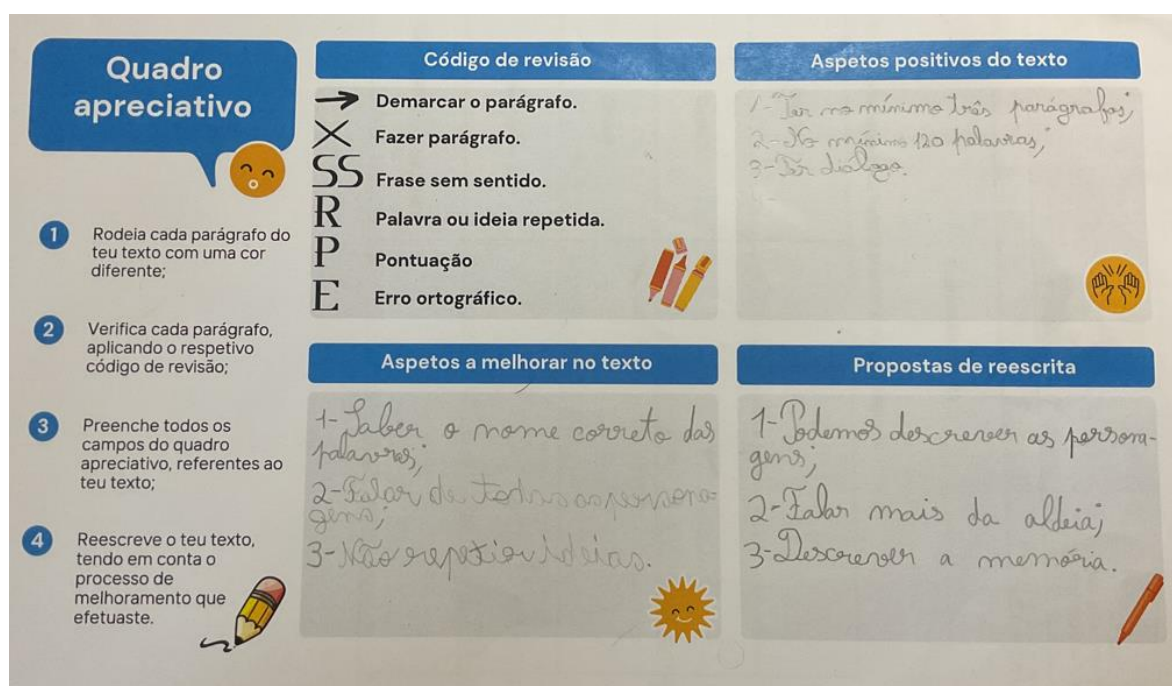 Quadro
apreciativo
1 Rodeia cada parágrafo do
teu texto com uma cor
diferente;
2 Verifica cada parágrafo,
aplicando o respetivo
código de revisão;
3 Preenche todos os
campos do quadro
apreciativo, referentes ao
teu texto;
4 Reescreve o teu texto,
tendo em conta o
processo de
melhoramento que
efetuaste.
Código de revisão
→ Demarcar o parágrafo.
X Fazer parágrafo.
SS Frase sem sentido.
R Palavra ou ideia repetida.
P Pontuação
E Erro ortográfico.
Aspetos positivos do texto
1-Ter no mínimo três parágrafos;
2-No mínimo 120 palavras;
3-Ter diálogo.
Aspetos a melhorar no texto
1-Saber o nome correto das
palavras;
2-Falar de todas as persona-
gens;
3-Não repetir ideias.
Propostas de reescrita
1-Podemos descrever as persona-
gens;
2-Falar mais da aldeia;
3-Descrever a memória.